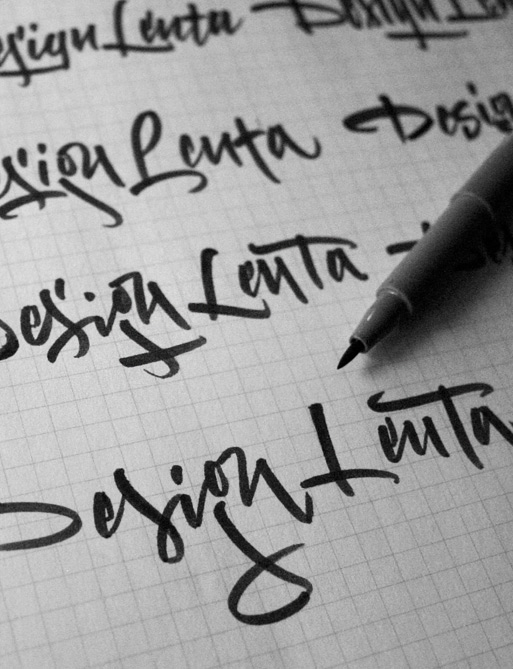 esign Lenta Design Len
sign Lenta Desig
Design Lenta
Design Lenta